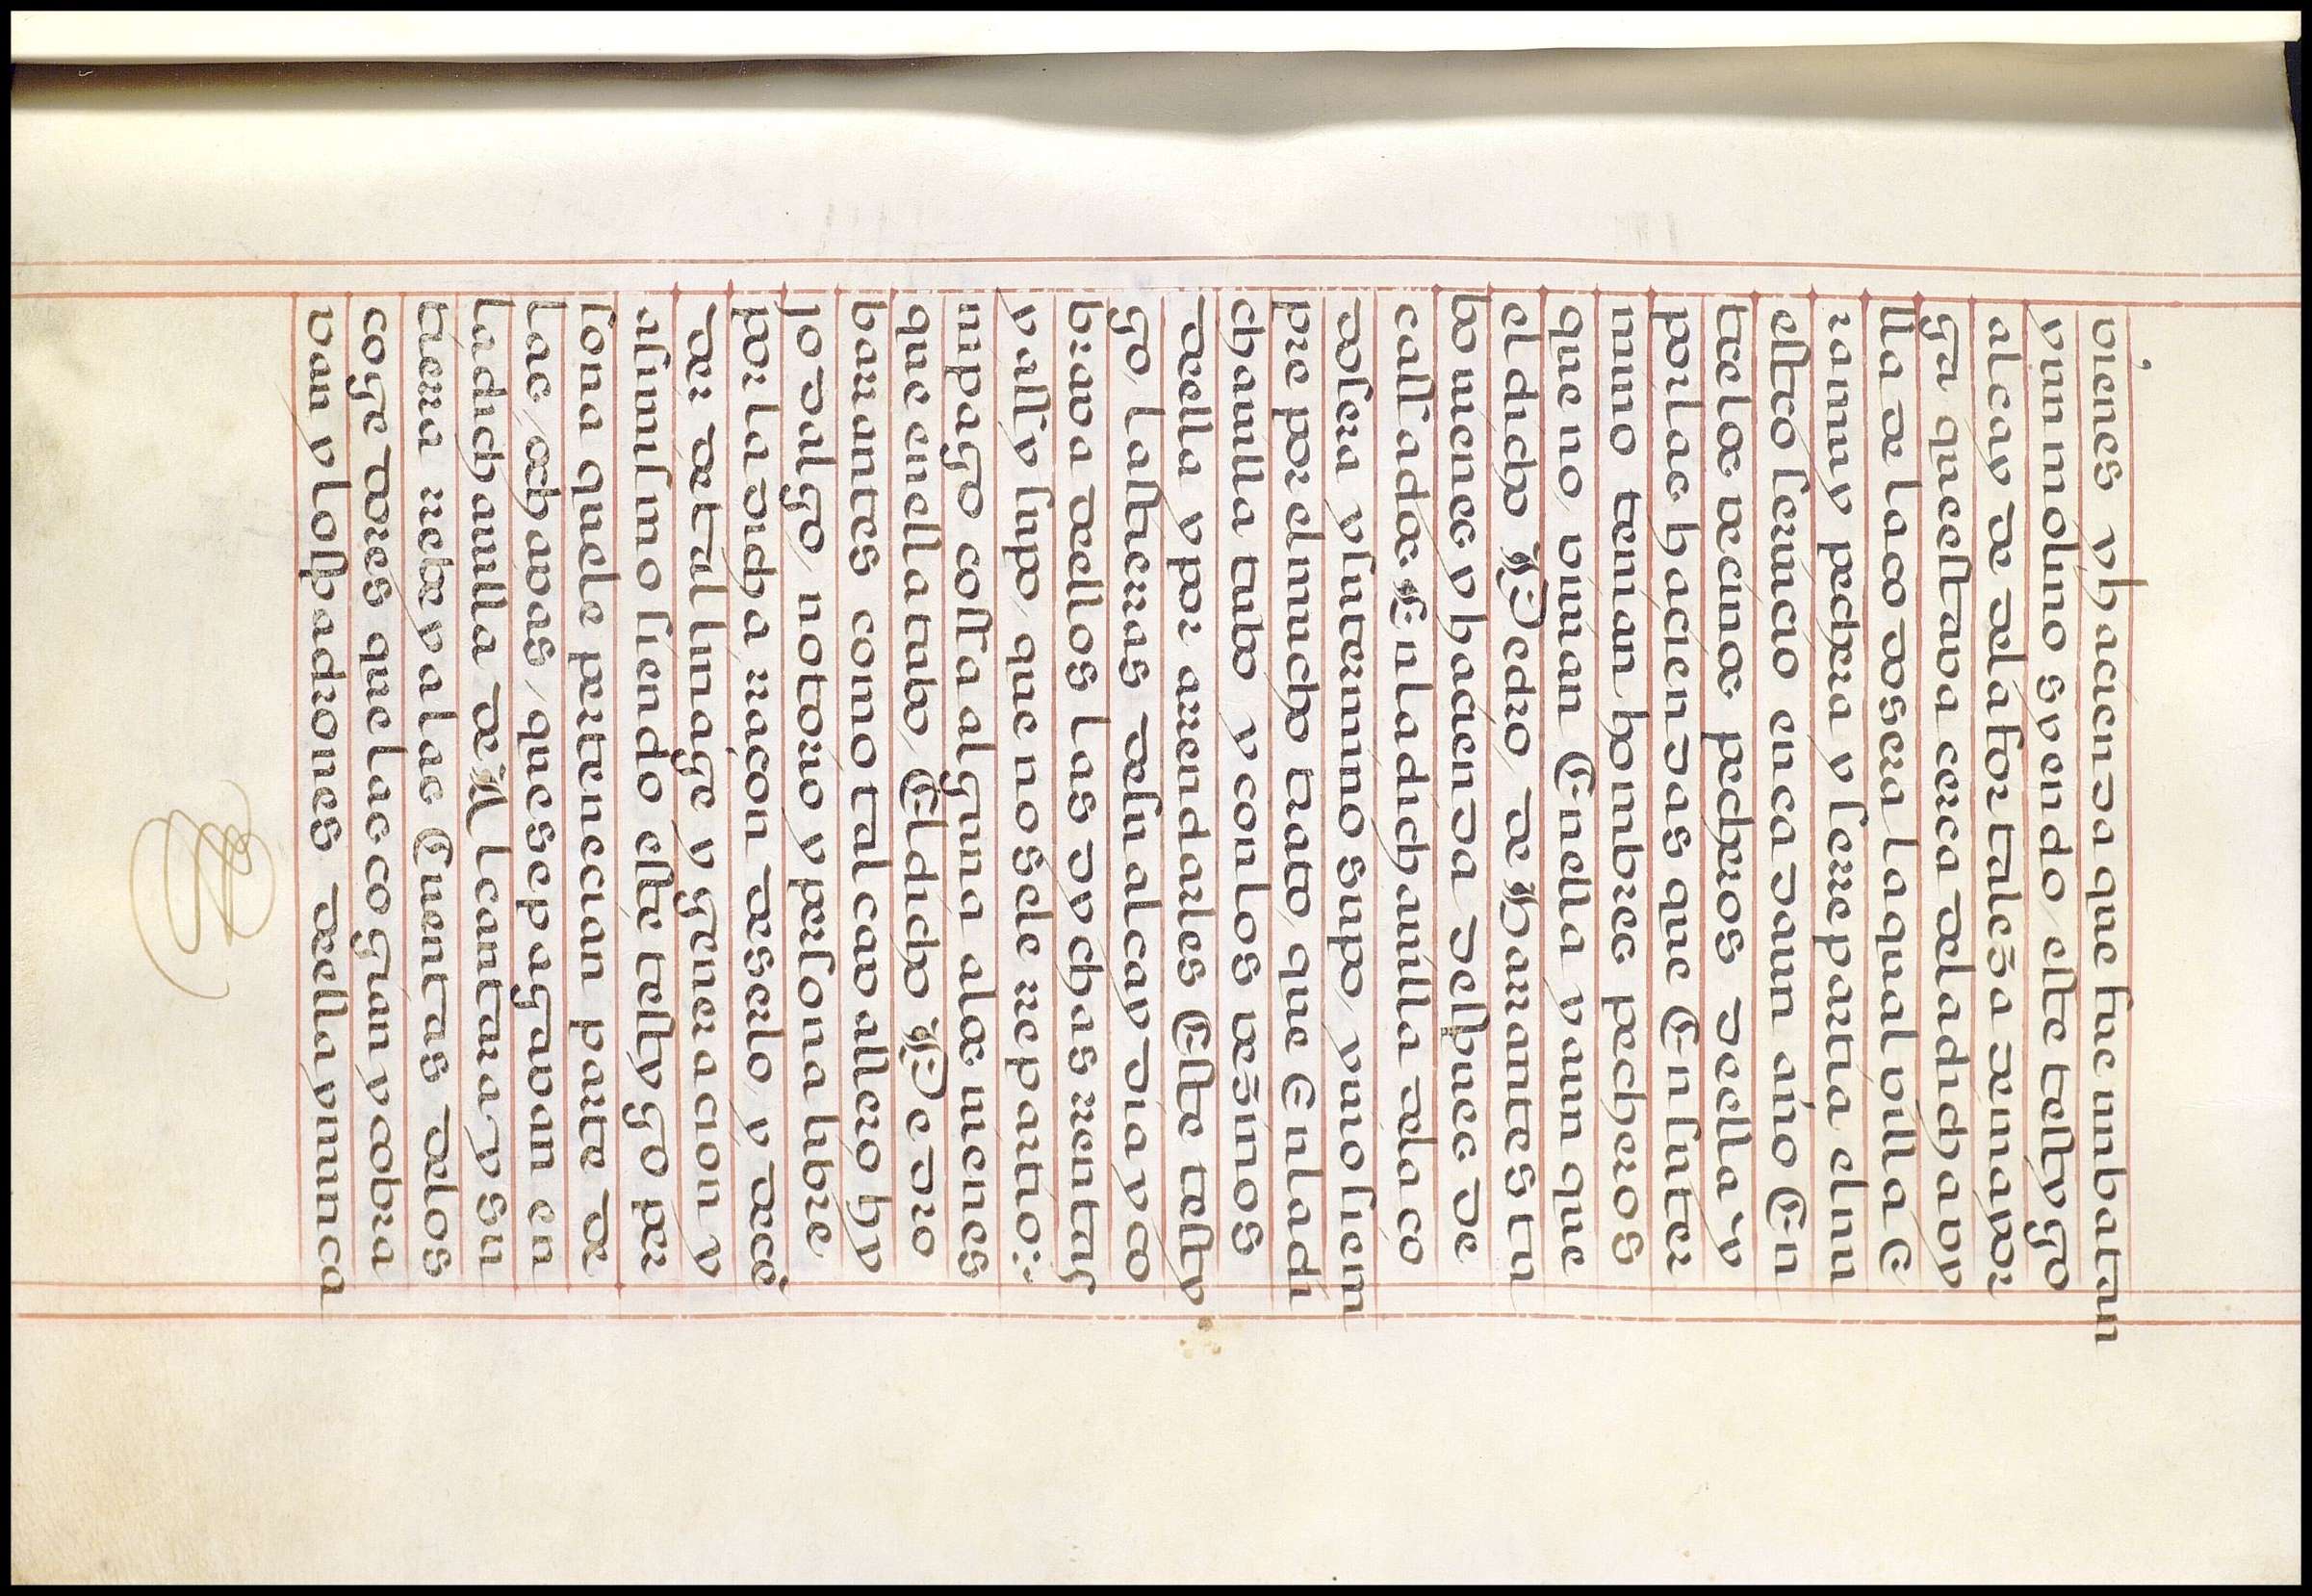 vienes y hacienda que fue inn batan
y un molino s yendo / este testygo
alcay de de la fortaleza de mayor
ga que estava cerca de la dicha vy
lla de laos dosera la qual villa E
ranny pechera y se repartia el nn
estro servicio en cada un año En
tre los vecinos pecheros della y
por las haciendas que En su ter
mino tenian hombres pecheros
que no vivian En ella y aun que
el dicho Pedro de Barrantes tu
bo vienes y hacienda despues de
cassado En la dicha villa de la co
dosera y su termino supo / y vio siem
pre por el mucho trato que En la di
cha villa tubo y con los vezinos
della y por arrendarles Este testy
go las tierras de su alcaydia y co
brava dellos las dychas rentas
y assy supo que no se le repartio:-
ni pago cossa alguna alos vienes
que en ella tubo El dicho Pedro
barrantes como tal cavallero hy
jodalgo notorio y persona libre
por la dicha raçon deserlo y dece
der de tal linage y generacion y
assi mismo siendo este testygo per
sona que le pertenecian parte de
las dechavas / que se pagavan en
la dicha villa de Alcantara y su
tierra rebey a las Cuentas de los
coge dores que las cogian y cobra
van y los padrones della y nunca